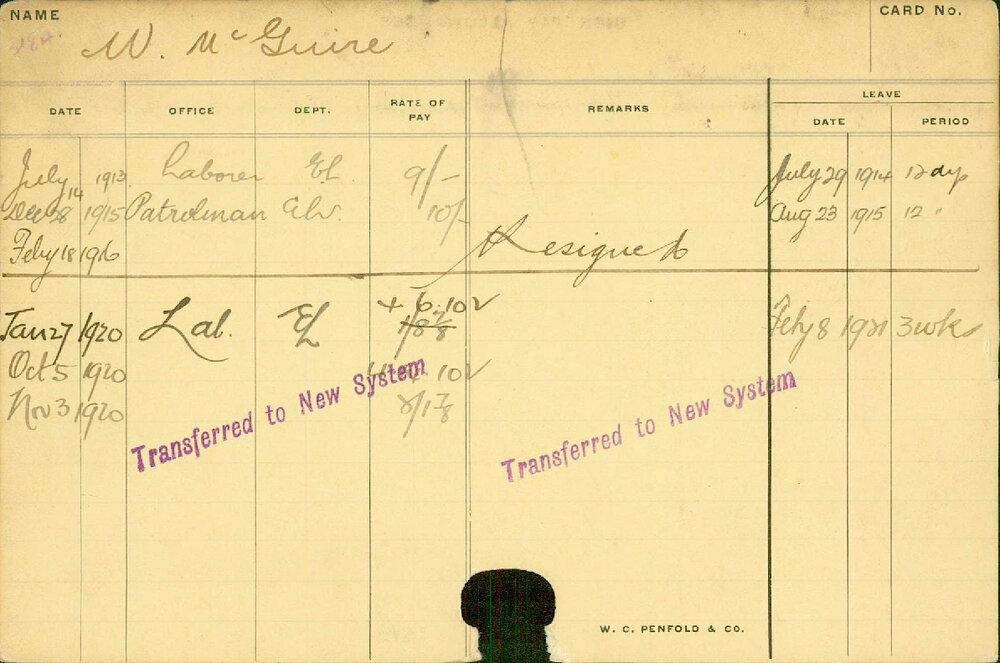 NAME
CARD No.
W. McGuire
DATE OFFICE DEPT. RATE OF PAY REMARKS LEAVE DATE PERIOD
July 14 1913 Laborer EL 9/- July 29 1914 12 dys
Dec 28 1915 Patrolman 10/- Aug 23 1915 12 "
Feby 18 1916 Resigned
Jan 27 1920 Lab. EL Feby 8 1921 3 wks
Oct 5 1920
Nov 3 1920
Transferred to New System
Transferred to New System
W. C. PENFOLD & CO.